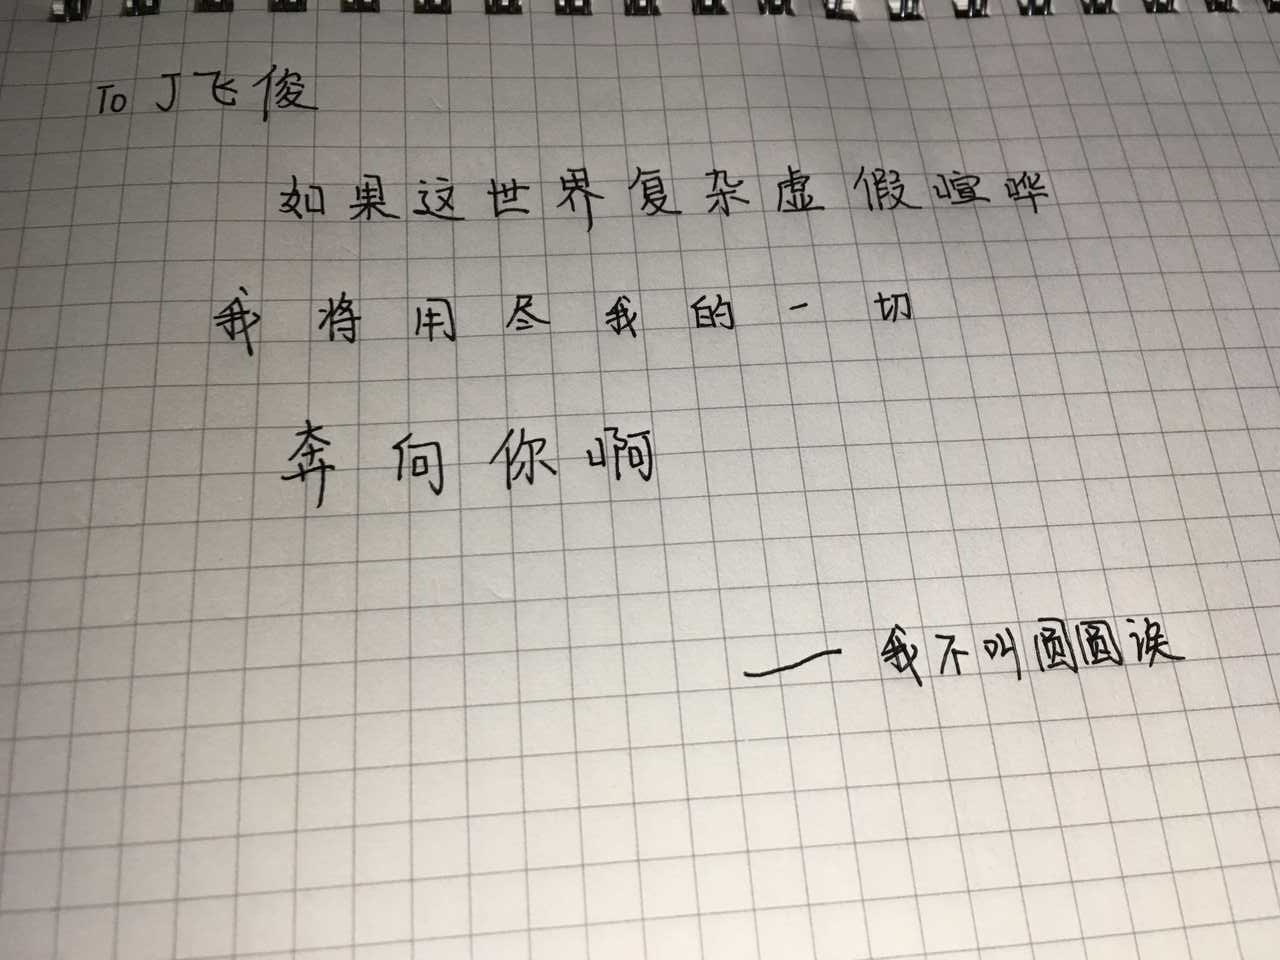 To J飞俊
如果这世界复杂虚假喧哗
我将用尽我的一切
奔向你啊
—我不叫圆圆诶